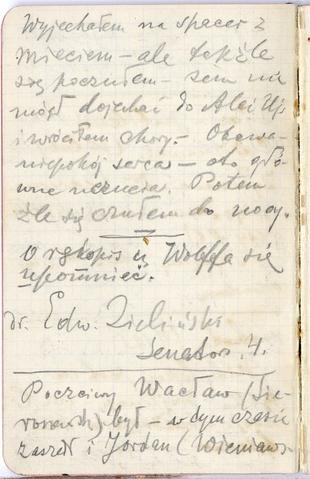 Wyjechałem na spacer z
Mieciem – ale tak źle
się poczułem – żem nie
mógł dojechać do Alei Uj.
i wróciłem chory. – Obawa –
niepokój serca – oto głó-
wne uczucia. Potem
źle się czułem do nocy.
O rękopis u Wolffa się
upomnieć.
dr. Edw. Zieliński
Senator. 4.
Poczciwy Wacław (Sie-
roszewski) był – w tym czasie
zaszedł i Jordan (Wieniaws-